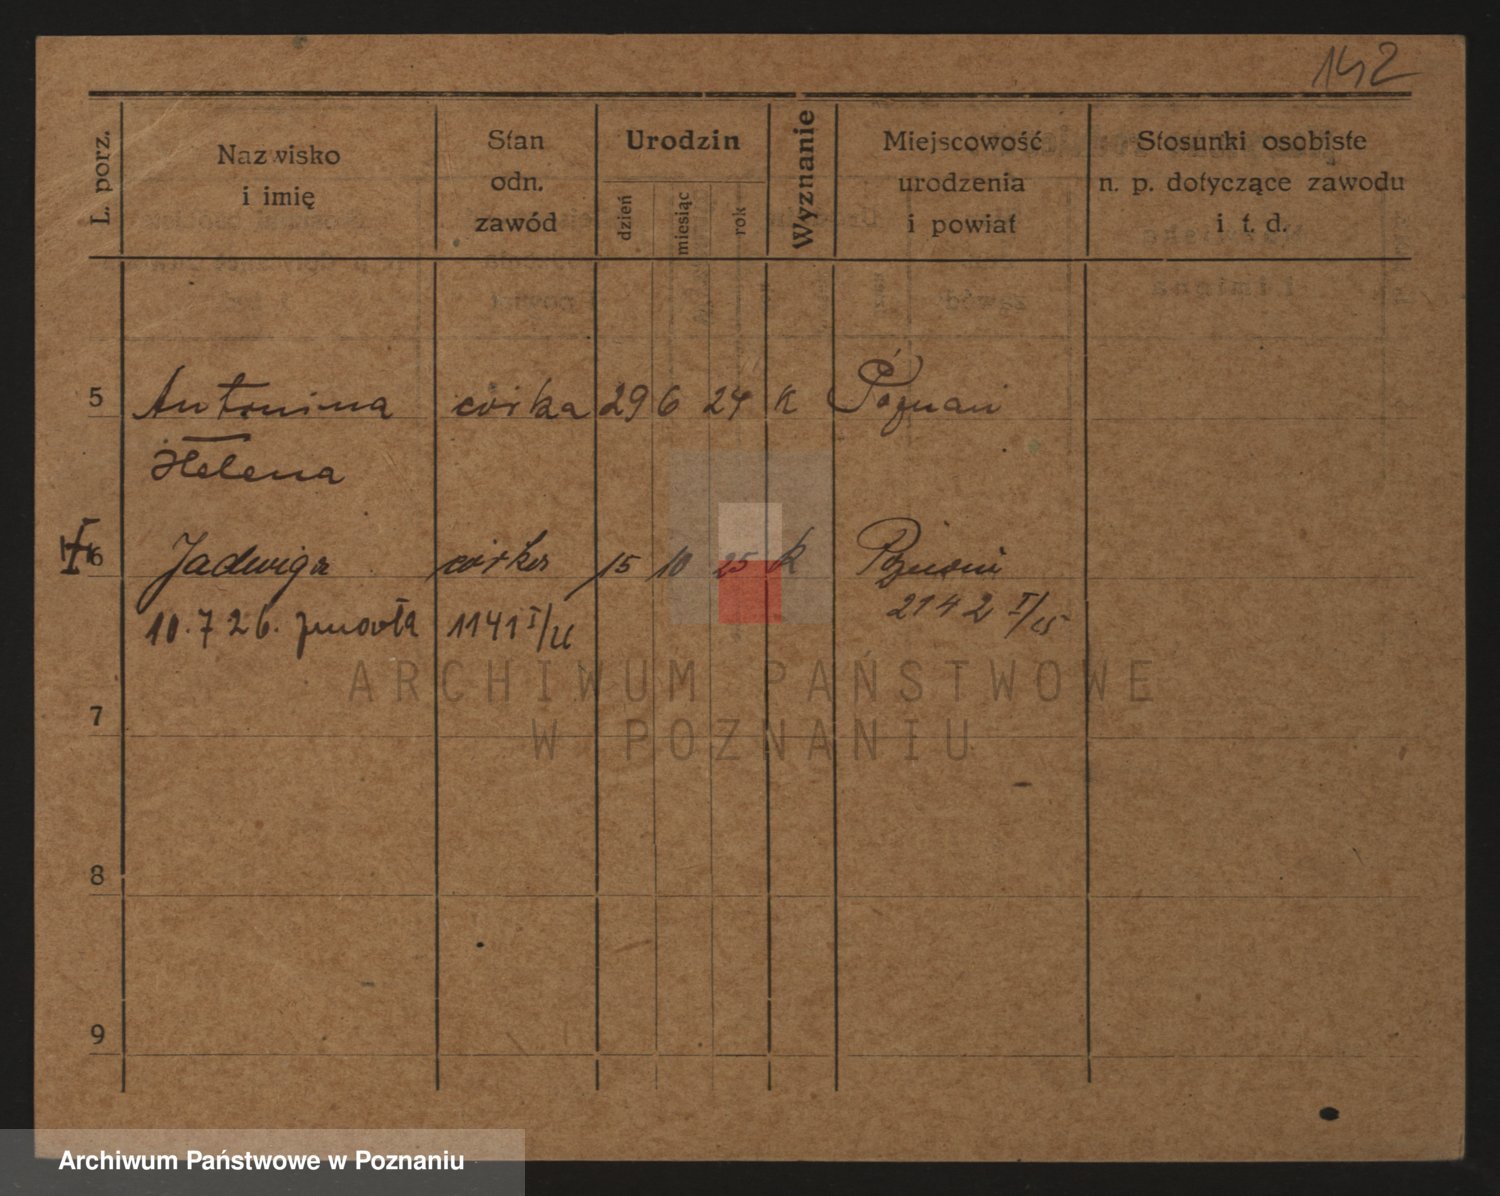 142
L. porz.
Nazwisko
i imię
Stan
odn.
zawód
Urodzin
dzień
miesiąc
rok
Wyznanie
Miejscowość
urodzenia
i powiat
Stosunki osobiste
n. p. dotyczące zawodu
i t. d.
5 Antonina córka 29 6 24 K Poznań
Helena
6 Jadwiga córka 15 10 25 K Poznań
10.7 26. zmarła 1141 I/26 2142 I/25
7
8
9
ARCHIWUM PAŃSTWOWE
W POZNANIU
Archiwum Państwowe w Poznaniu